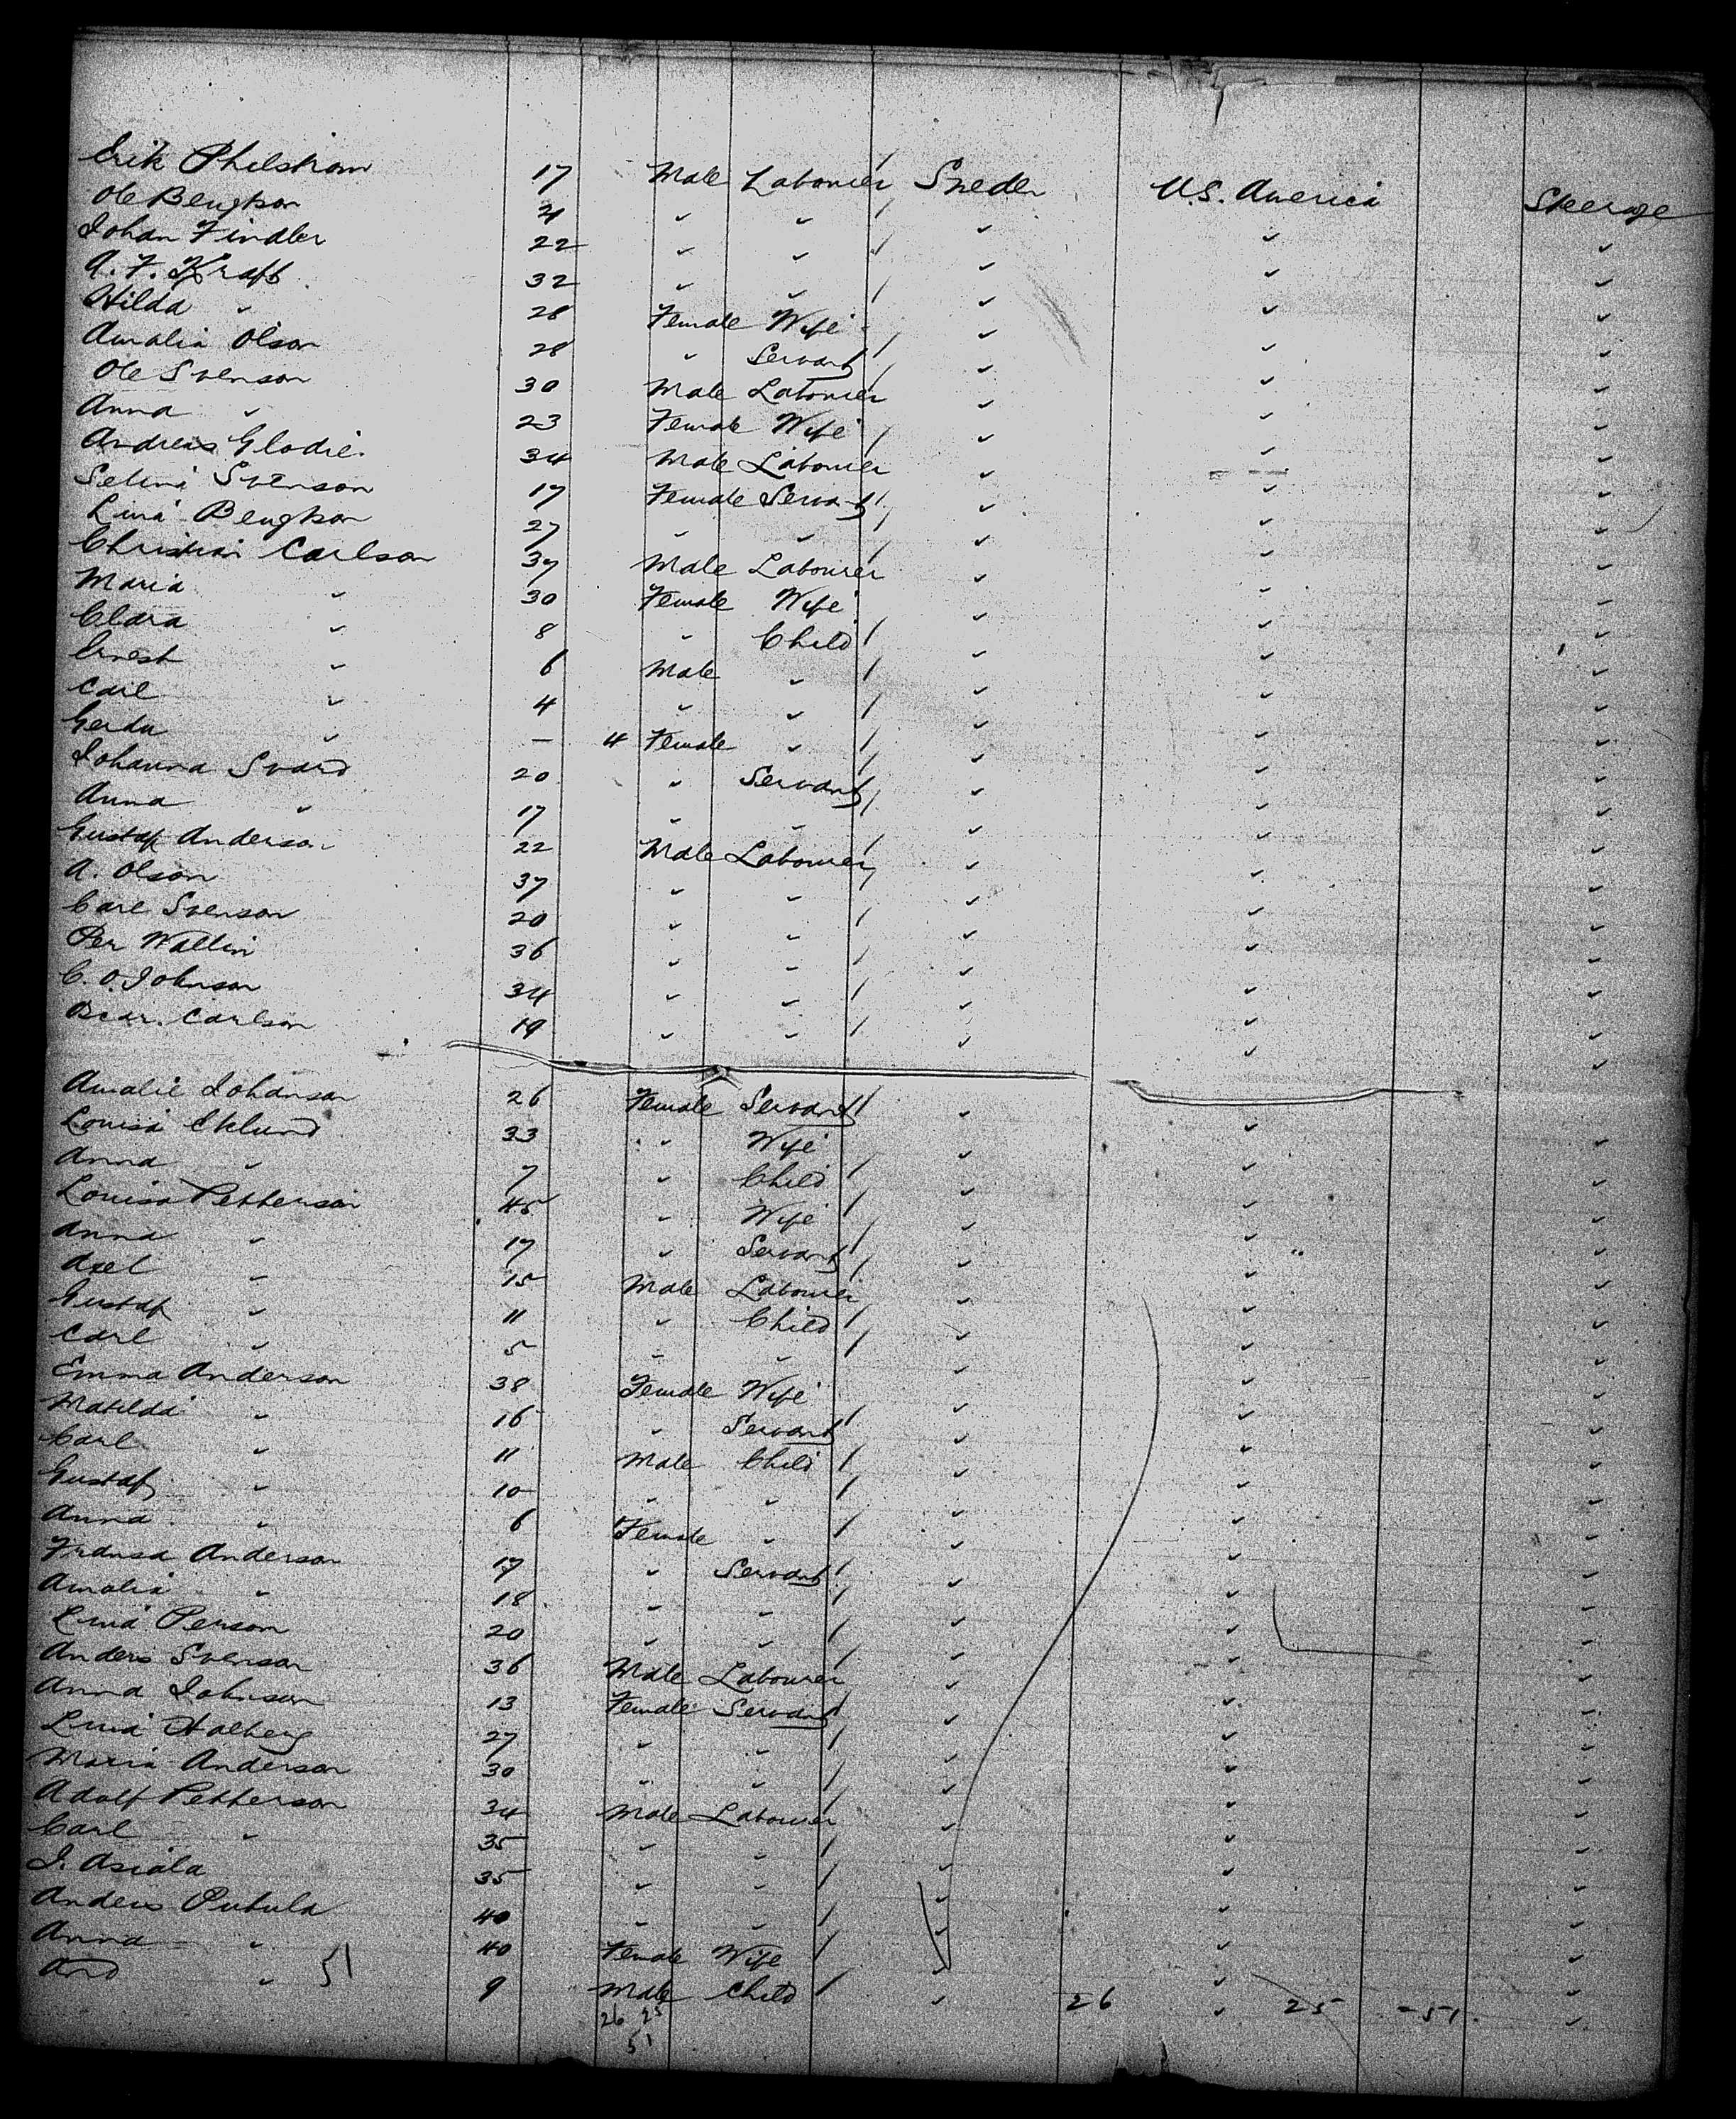 Erik Philstrom 17 Male Labourer / Sweden U.S. America Steerage
Ole Bengtson 21 " " / " " "
Johan Findler 22 " " / " " "
A. F. Kraft 32 " " / " " "
Hilda " 28 Female Wife " " "
Amalia Olson 28 " Servant / " " "
Ole Svenson 30 Male Labourer / " " "
Anna " 23 Female Wife " " "
Andreas Glodie 34 Male Labourer / " " "
Selina Svenson 17 Female Servant / " " "
Lina Bengtson 27 " " / " " "
Christian Carlson 37 Male Labourer / " " "
Maria " 30 Female Wife " " "
Clara " 8 " Child / " " "
Ernest " 6 Male " / " " "
Carl " 4 " " / " " "
Gerda " — 4 Female " / " " "
Johanna Svard 20 " Servant / " " "
Anna " 17 " " / " " "
Gustaf Anderson 22 Male Labourer / " " "
A. Olson 37 " " / " " "
Carl Svenson 20 " " / " " "
Per Wallin 36 " " / " " "
C. O. Johnson 34 " " / " " "
Oscar Carlson 19 " " / " " "
Amalie Johanson 26 Female Servant / " " "
Louisa Eklund 33 " Wife " " "
Anna " 7 " Child / " " "
Louisa Petterson 45 " Wife / " " "
Anna " 17 " Servant / " " "
Axel " 15 Male Labourer / " " "
Gustaf " 11 " Child / " " "
Carl " 5 " " / " " "
Emma Anderson 38 Female Wife " " "
Matilda " 16 " Servant / " " "
Carl " 11 Male Child / " " "
Gustaf " 10 " " / " " "
Anna " 6 Female " / " " "
Fransa Anderson 17 " Servant / " " "
Amalia " 18 " " / " " "
Lina Person 20 " " / " " "
Anders Svenson 36 Male Labourer / " " "
Anna Johnson 13 Female Servant / " " "
Lina Halberg 27 " " / " " "
Maria Anderson 30 " " / " " "
Adolf Petterson 34 Male Labourer / " " "
Carl " 35 " " / " " "
J. Asiala 35 " " / " " "
Anders Putula 40 " " / " " "
Anna " 40 Female Wife / " " "
" 51 9 Male Child / " 26 " 25 - 51 "
26 25
51